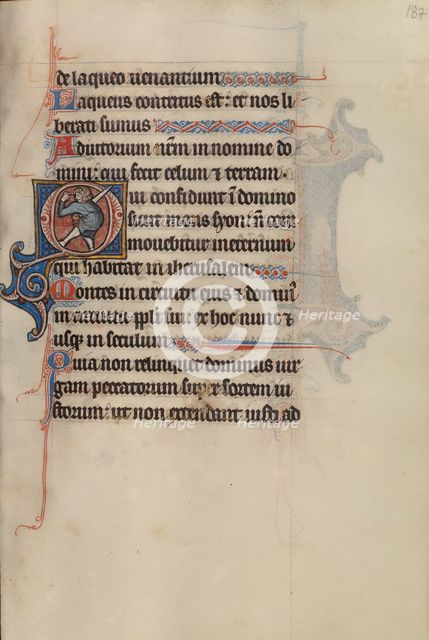 187
de laqueo uenantium
Laqueus contritus est: et nos li
berati sumus
Adiutorium nr̃m in nomine do
mini: qui fecit celum ⁊ terram.
Qui confidunt ĩ domino
sicut mons syon: nõ com
mouebitur in eternum
qui habitat in iherusalem
Montes in circuitu eius ⁊ domin᷒
in circuitu ppl̃i sui: ex hoc nunc ⁊
usq; in seculum
Quia non relinquet dominus uir
gam peccatorum sup̃ sortem iu
storum: ut non extendant iusti ad
Heritage
Heritage
Heritage
Heritage